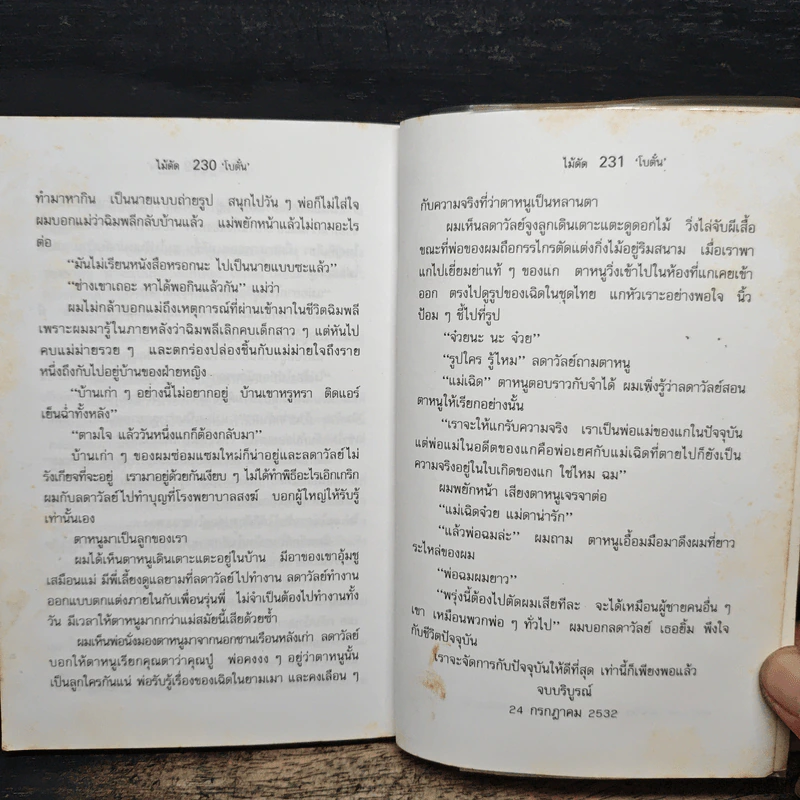 ไม้ดัด 230 'โบตั๋น'
ทำมาหากิน เป็นนายแบบถ่ายรูป สนุกไปวัน ๆ พ่อก็ไม่ใส่ใจ
ผมบอกแม่ว่าฉิมพลีกลับบ้านแล้ว แม่พยักหน้าแล้วไม่ถามอะไร
ต่อ
“มันไม่เรียนหนังสือหรอกนะ ไปเป็นนายแบบซะแล้ว”
“ช่างเขาเถอะ หาได้พอกินแล้วกัน” แม่ว่า
ผมไม่กล้าบอกแม่ถึงเหตุการณ์ที่ผ่านเข้ามาในชีวิตฉิมพลี
เพราะผมมารู้ในภายหลังว่าฉิมพลีเลิกคบเด็กสาว ๆ แต่หันไป
คบแม่ม่ายรวย ๆ และตกร่องปล่องชิ้นกับแม่ม่ายใจถึงราย
หนึ่งถึงกับไปอยู่บ้านของฝ่ายหญิง
“บ้านเก่า ๆ อย่างนี้ไม่อยากอยู่ บ้านเขาหรูหรา ติดแอร์
เย็นฉ่ำทั้งหลัง”
“ตามใจ แล้ววันหนึ่งแกก็ต้องกลับมา”
บ้านเก่า ๆ ของผมซ่อมแซมใหม่ก็น่าอยู่และลดาวัลย์ไม่
รังเกียจที่จะอยู่ เรามาอยู่ด้วยกันเงียบ ๆ ไม่ได้ทำพิธีอะไรเอิกเกริก
ผมกับลดาวัลย์ไปทำบุญที่โรงพยาบาลสงฆ์ บอกผู้ใหญ่ให้รับรู้
เท่านั้นเอง
ตาหนูมาเป็นลูกของเรา
ผมได้เห็นตาหนูเดินเตาะแตะอยู่ในบ้าน มีอาของเขาอุ้มชู
เสมือนแม่ มีพี่เลี้ยงดูแลยามที่ลดาวัลย์ไปทำงาน ลดาวัลย์ทำงาน
ออกแบบตกแต่งภายในกับเพื่อนรุ่นพี่ ไม่จำเป็นต้องไปทำงานทั้ง
วัน มีเวลาให้ตาหนูมากกว่าแม่สมัยนี้เสียด้วยซ้ำ
ผมเห็นพ่อนั่งมองตาหนูมาจากนอกชานเรือนหลังเก่า ลดาวัลย์
บอกให้ตาหนูเรียกคุณตาว่าคุณปู่ พ่อคงงง ๆ อยู่ว่าตาหนูนั้น
เป็นลูกใครกันแน่ พ่อรับรู้เรื่องของเฉิดในยามเมา และคงเลือน ๆ
ไม้ดัด 231 'โบตั๋น'
กับความจริงที่ว่าตาหนูเป็นหลานตา
ผมเห็นลดาวัลย์จูงลูกเดินเตาะแตะดูดอกไม้ วิ่งไล่จับผีเสื้อ
ขณะที่พ่อของผมถือกรรไกรตัดแต่งกิ่งไม้อยู่ริมสนาม เมื่อเราพา
แกไปเยี่ยมย่าแท้ ๆ ของแก ตาหนูวิ่งเข้าไปในห้องที่แกเคยเข้า
ออก ตรงไปดูรูปของเฉิดในชุดไทย แกหัวเราะอย่างพอใจ นิ้ว
ป้อม ๆ ชี้ไปที่รูป
“จ๋วยนะ นะ จ๋วย”
“รูปใคร รู้ไหม” ลดาวัลย์ถามตาหนู
“แม่เฉิด” ตาหนูตอบราวกับจำได้ ผมเพิ่งรู้ว่าลดาวัลย์สอน
ตาหนูให้เรียกอย่างนั้น
“เราจะให้แกรับความจริง เราเป็นพ่อแม่ของแกในปัจจุบัน
แต่พ่อแม่ในอดีตของแกคือพ่อเยศกับแม่เฉิดที่ตายไปก็ยังเป็น
ความจริงอยู่ในใบเกิดของแก ใช่ไหม ฉม”
ผมพยักหน้า เสียงตาหนูเจรจาต่อ
“แม่เฉิดจ๋วย แม่ดาน่าร้ก”
“แล้วพ่อฉมล่ะ” ผมถาม ตาหนูเอื้อมมือมาดึงผมที่ยาว
ระไหล่ของผม
“พ่อฉมผมยาว”
“พรุ่งนี้ต้องไปตัดผมเสียทีละ จะได้เหมือนผู้ชายคนอื่น ๆ
เขา เหมือนพวกพ่อ ๆ ทั่วไป” ผมบอกลดาวัลย์ เธอยิ้ม พึงใจ
กับชีวิตปัจจุบัน
เราจะจัดการกับปัจจุบันให้ดีที่สุด เท่านี้ก็เพียงพอแล้ว
จบบริบูรณ์
24 กรกฎาคม 2532